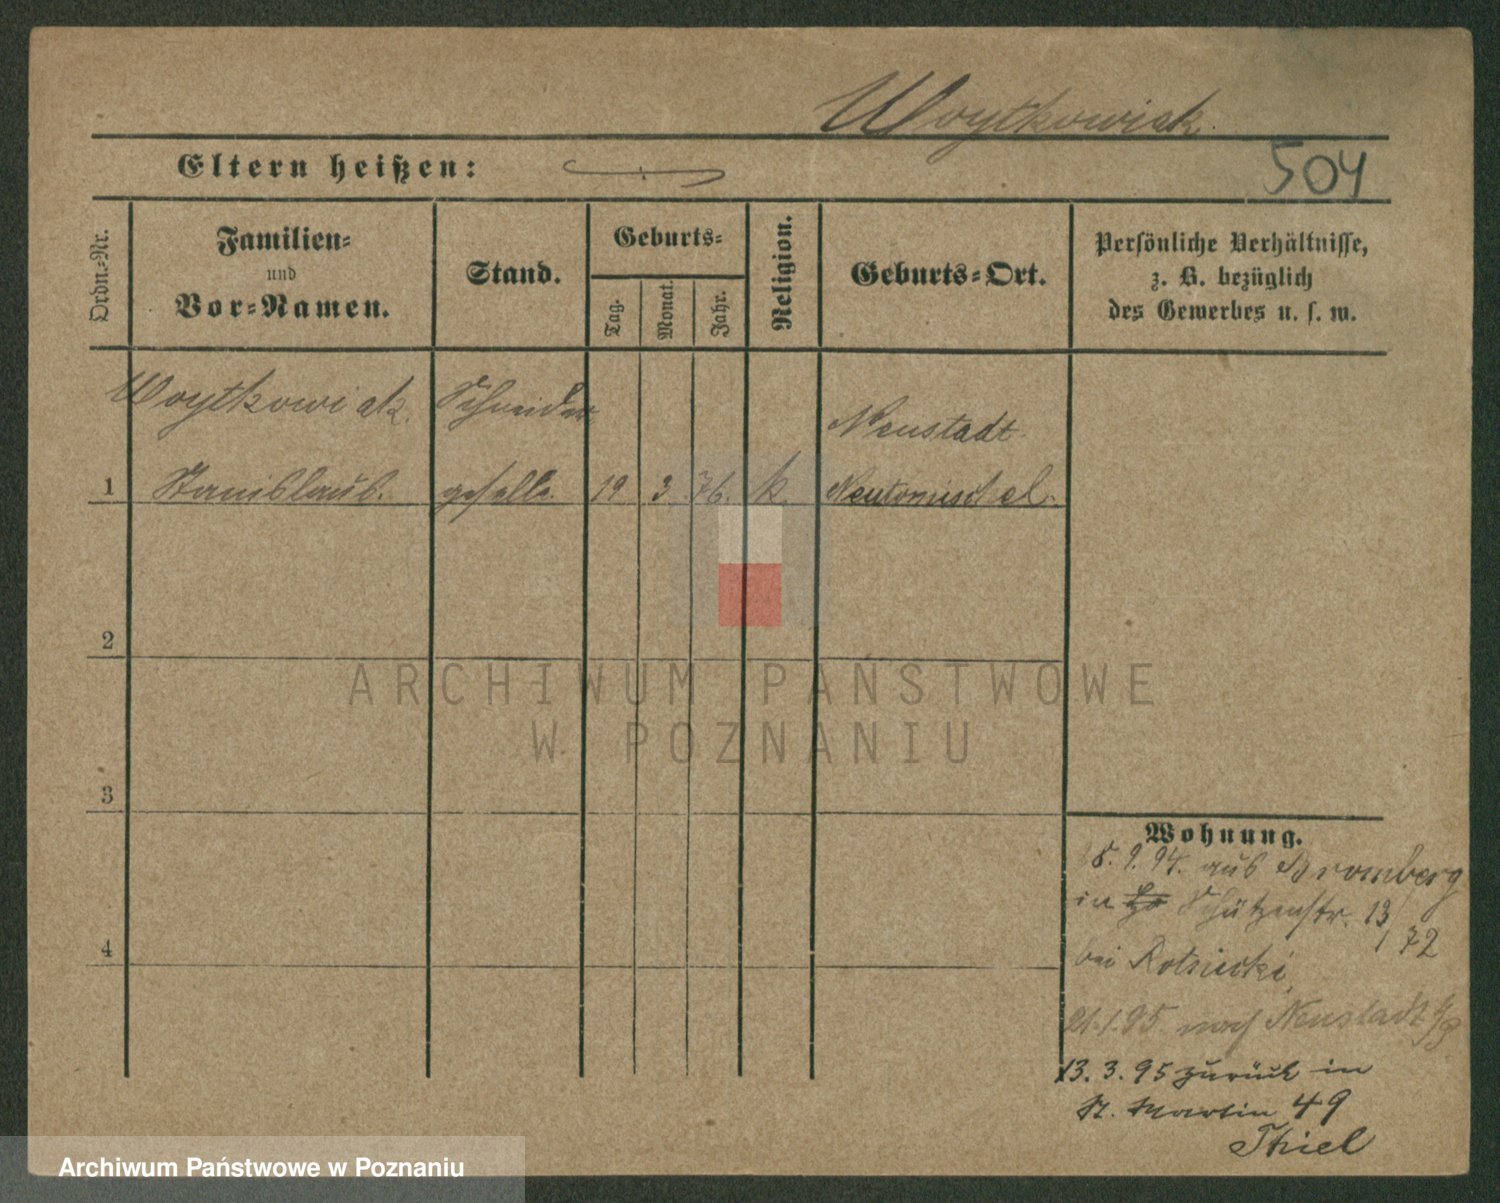 Woytkowiak.
Eltern heißen:
504
Ordn.-Nr.
Familien-
und
Vor-Namen.
Stand.
Geburts-
Tag.
Monat.
Jahr.
Religion.
Geburts-Ort.
Persönliche Verhältnisse,
z. B. bezüglich
des Gewerbes u. s. w.
Woytkowiak. Schneider
Neustadt
1 Stanislaus. geselle. 19 3 76. k. Neutomischel.
2
3
4
Wohnung.
8. 9. 94. aus Bromberg
in Schützenstr. 13/72
bei
21.1.95 nach Neustadt
13. 3. 95 zurück in
St. Martin 49
Thiel
ARCHIWUM PAŃSTWOWE
W POZNANIU
Archiwum Państwowe w Poznaniu